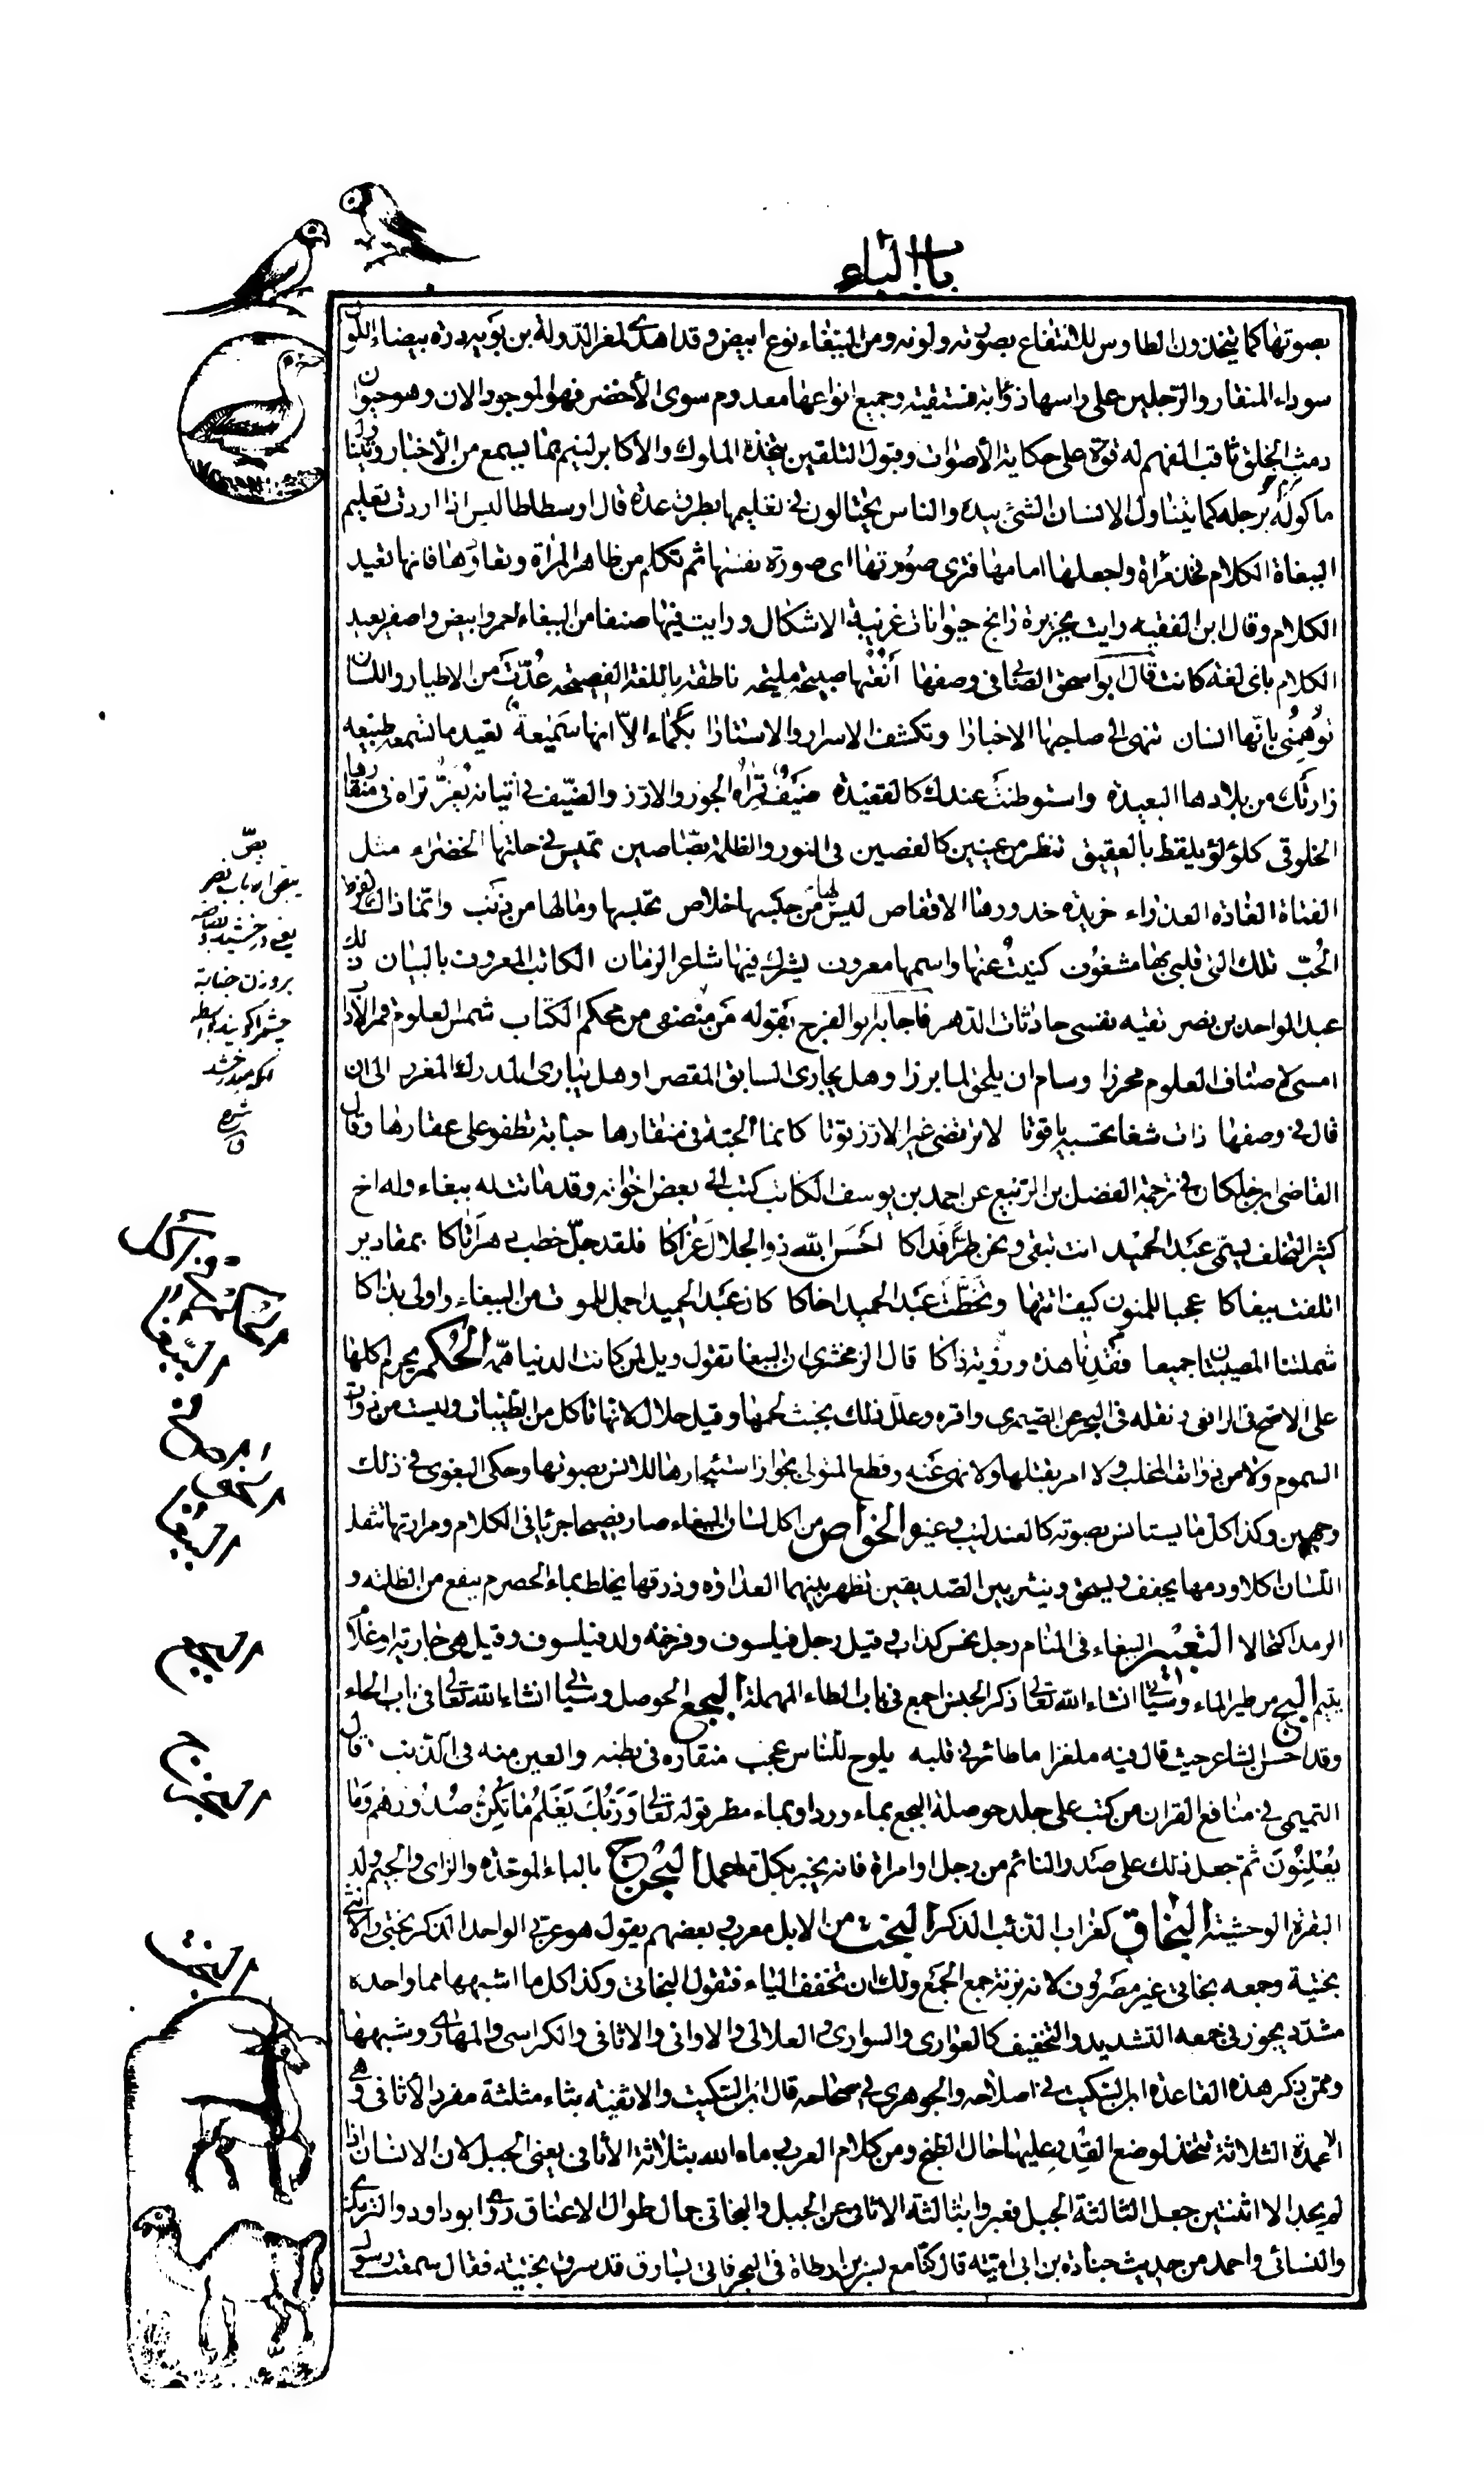 باب الباء
بصوتها كما يتخذون الطاوس للانتفاع بصوته ولونه ومن الببغاء نوع ابيض وقد اهدى لمعز الدولة بن بويه درة بيضاء اللون
سوداء المنقار والرجلين على راسها ذؤابة فستقية وجميع انواعها معدوم سوى الأخضر فهو الموجود الان وهو حيوان
دمث الخلق ثاقب الفهم له قوة على حكاية الأصوات وقبول التلقين يتخذه الملوك والأكابر لينم بما يسمع من الأخبار ويتناول
ماكوله برجله كما يتناول الانسان الشئ بيده والناس يحتالون في تعليمها بطرق عدة قال ارسطاطاليس اذا اردت تعليم
الببغاة الكلام فخذ مرآة واجعلها امامها فترى صورتها اى صورة نفسها ثم تكلم من ظاهر المراة وتعاودها فانها تعيد
الكلام وقال ابن الفقيه رايت بجزيرة زانج حيوانات غريبة الاشكال ورايت فيها صنفا من الببغاء احمر وابيض واصفر يعيد
الكلام باى لغة كانت قال ابو اسحق الصابى فى وصفها الفتها صبيحة مليحه ناطقة باللغة الفصيحه عدت من الاطيار واللسان
يوهمنى بانها انسان تنهى الى صاحبها الاخبارا وتكشف الاسرار والاستارا بكماء الا انها سميعة تعيد ما تسمعه طبيعه
زارتك من بلادها البعيدة واستوطنت عندك كالقعيدة ضيف قراه الجوز والارز والضيف فى اتيانه يعز تراه فى منقارها
الخلوقى كلؤلؤ يلقط بالعقيق تنظر من عينين كالفصين فى النور والظلمة بصاصين تميس فى حلتها الخضراء مثل
الفتاة الغادة العذراء خريدة خدورها الاقفاص ليس لها من حبسها خلاص نحبسها وما لها من ذنب وانما ذاك لفرط
الحب تلك التى قلبى بها مشغوف كنيت عنها واسمها معروف يشرك فيها شاعر الزمان الكاتب المعروف بالبيان ذلك
عبد الواحد بن نصر تقيه نفسى حادثات الدهر فاجابه ابو الفرج بقوله من منصفى من محكم الكتاب شمس العلوم قمر الآداب
امسى لاصناف العلوم محرزا وسام ان يلحق لما برزا وهل يجارى السابق المقصر او هل يبارى المدرك المغرر الى ان
قال فى وصفها ذات شغا تحسبه ياقوتا لا ترتضى غير الارز قوتا كانما الحبة فى منقارها حبابة تطفو على عقارها وقال
القاضى ابن خلكان فى ترجمة الفضل بن الربيع عن احمد بن يوسف الكاتب كتب الى بعض اخوانه وقد ماتت له ببغاء وله اخ
كثير التخلف يسمى عبد الحميد انت تبقى ونحن طرا فداكا احسن الله ذو الجلال عزاكا فلقد جل خطب دهر اتاكا بمقادير
اتلفت ببغاكا عجبا للمنون كيف اتتها وتخطت عبد الحميد اخاكا كان عبد الحميد اجمل للموت من الببغاء واولى بذاكا
شملتنا المصيبتان جميعا فقدنا هذه ورؤية ذاكا قال الزمخشرى ان الببغا تقول ويل لمن كانت الدنيا همه الحكم يحرم اكلها
على الاصح فى الرافعى ونقله فى البحر عن الصيمرى واقره وعلل ذلك بخبث لحمها وقيل حلال لانها تاكل من الطيبات وليست من ذوات
السموم ولا من ذوات المخلب ولا امر بقتلها ولا نهى عنه وقطع المتولى بجواز استئجارها للانس بصوتها وحكى البغوى فى ذلك
وجهين وكذا كل ما يستانس بصوته كالعندليب وغيره الخواص من اكل لسان الببغاء صار فصيحا جريئا فى الكلام ومرارتها تثقل
اللسان اكلا ودمها يجفف ويسحق وينثر بين الصديقين تظهر بينهما العداوة وذرقها يخلط بماء الحصرم ينفع من الظلمة و
الرمد اكتحالا التعبير الببغاء فى المنام رجل نحس كذاب وقيل رجل فيلسوف وفرخه ولد فيلسوف وقيل هى جارية او غلام
يتيم البج من طير الماء وسياتى انشاء الله تعالى ذكر الجنس اجمع فى باب الطاء المهملة البجع الحوصل وسياتى انشاء الله تعالى فى باب الحاء
وقد احسن الشاعر حيث قال فيه ملغزا ما طائر فى قلبه يلوح للناس عجب منقاره فى بطنه والعين منه فى الذنب قال
التميمى فى منافع القران من كتب على جلد حوصلة البجع بماء ورد وبماء مطر قوله تعالى وربك يعلم ما تكن صدورهم وما
يعلنون ثم جعل ذلك على صدر النائم من رجل او امراة فانه يخبر بكل ما عمل البحزج بالباء الموحدة والزاى والجيم ولد
البقرة الوحشية البخاق كغراب الذئب الذكر البخت من الابل معرب وبعضهم يقول هو عربى الواحد الذكر بختى والانثى
بختية وجمعه بخاتى غير مصروف لانه بزنة جمع الجمع ولك ان تخفف الياء فتقول البخاتى وكذا كل ما اشبهها مما واحده
مشدد يجوز فى جمعه التشديد والتخفيف كالعوارى والسوارى والعلالى والاوانى والاثافى والكراسى والمهارى وشبهها
وممن ذكر هذه القاعدة ابن السكيت فى اصلاحه والجوهرى فى صحاحه قال ابن السكيت والاثفية بثاء مثلثة مفرد الأثافى وهى
الاعمدة الثلاثة تتخذ لوضع القدر عليها حال الطبخ ومن كلام العرب رماه الله بثالثة الأثافى يعنى الجبل لان الانسان اذا
لم يجد الا اثنتين جعل الثالثة الجبل فعبروا بثالثة الاثافى عن الجبل والبخاتى جمال طوال الاعناق روى ابو داود والترمذى
والنسائى واحمد من حديث جنادة بن ابى امية قال كنا مع بسر بن ارطاة فى البحر فاتى بسارق قد سرق بختية فقال سمعت رسول
بص
بروزن جنابة
شرح
الببغا
الببغا
البج
البحزج
البخت